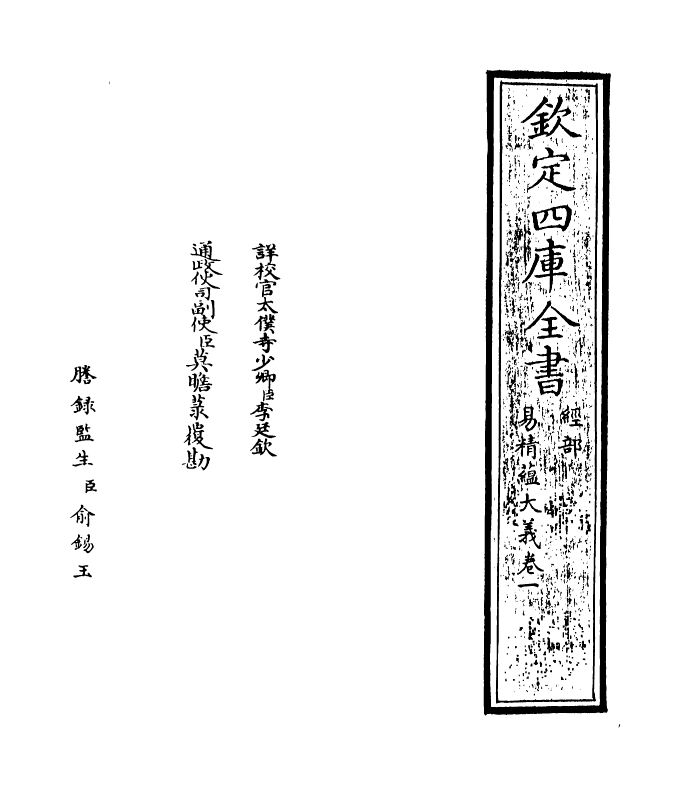 欽定四庫全書
經部
易精蘊大義卷一
詳校官太僕寺少卿臣李廷欽
通政使司副使臣莫瞻菉覆勘
謄錄監生臣俞錫玉